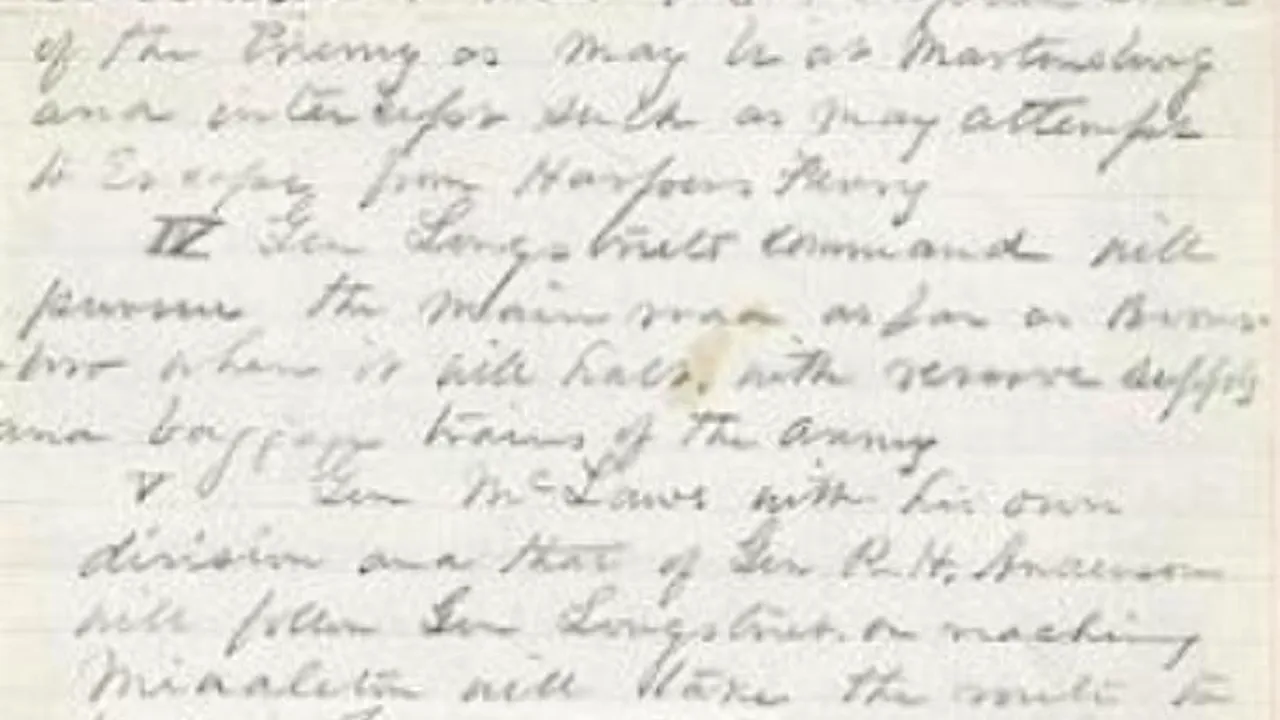 of the Enemy as may be at Martinsburg
and intercept such as may attempt
to Escape from Harpers Ferry
IV Gen Longstreets command will
pursue the main road as far as Boons-
-boro where it will halt, with reserve supply
and baggage trains of the army
V Gen McLaws with his own
division and that of Gen R. H. Anderson
will follow Gen Longstreet. on reaching
Middleton will take the route to